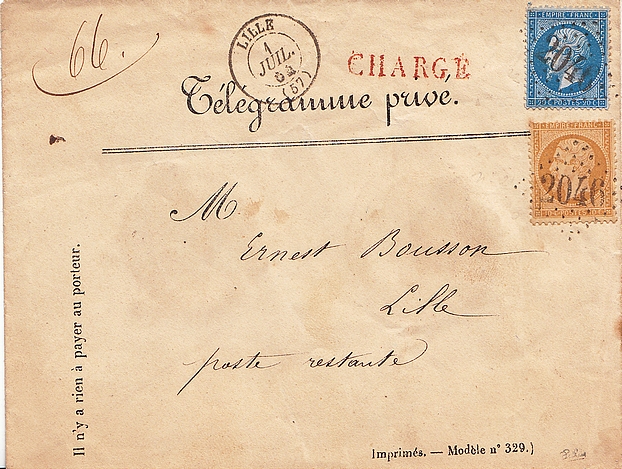 66.
LILLE
1
JUIL.
64
(57)
CHARGÉ
EMPIRE FRANC
2046
20 C POSTES 20 C
Télégramme privé.
EMPIRE FRANC
2046
M
Ernest Bousson
Lille
poste restante
Il n'y a rien à payer au porteur.
Imprimés. — Modèle n° 329.)